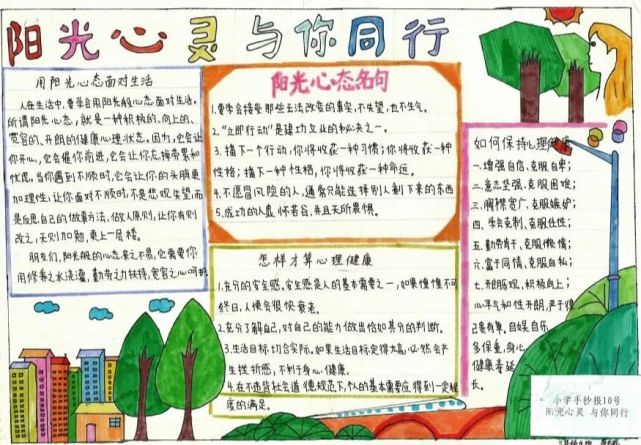 阳光心灵与你同行
用阳光心态面对生活
人在生活中,要学会用阳光般心态面对生活。
所谓阳光心态,就是一种积极的、向上的、
宽容的、开朗的健康心理状态。因为,它会让
你开心,它会催你前进,它会让你忘掉劳累和
忧虑。当你遇到不顺时,它会让你的头脑更
加理性,让你面对不顺时,不是悲观失望,而
是反思自己的做事方法、做人原则,让你有则
改之,无则加勉,更上一层楼。
朋友们,阳光般的心态来之不易,它需要你
用修养之水浇灌,勤劳之力扶持,宽容之心呵护
阳光心态名句
1.要学会接受那些无法改变的事实,不失望,也不生气。
2.“立即行动”是建功立业的秘诀之一。
3.播下一个行动,你将收获一种习惯;你将收获一种
性格;播下一种性格,你将收获一种命运。
4.不愿冒风险的人,通常只能选择别人剩下来的东西
5.成功的人虚怀若谷,并且无所畏惧。
怎样才算心理健康
1.充分的安全感。安全感是人的基本需要之一,如果惶惶不可
终日,人便会很快衰老。
2.充分了解自己,对自己的能力做出恰如其分的判断。
3.生活目标切合实际。如果生活目标定得太高,必然会产
生挫折感,不利于身心健康。
4.在不违背社会道德规范下,个人的基本需要应得到一定程
度的满足。
如何保持心理健康
一.增强自信、克服自卑;
二.意志坚强、克服困难;
三.胸襟宽广、克服嫉妒;
四.学会克制、克服任性;
五.勤劳肯干、克服懒惰;
六.富于同情、克服自私;
七.开朗乐观、积极向上;
心平气和性开朗,严于律
己责有尊,自娱自乐
多保重,身心
健康寿延
长。
小学手抄报10号
阳光心灵 与你同行